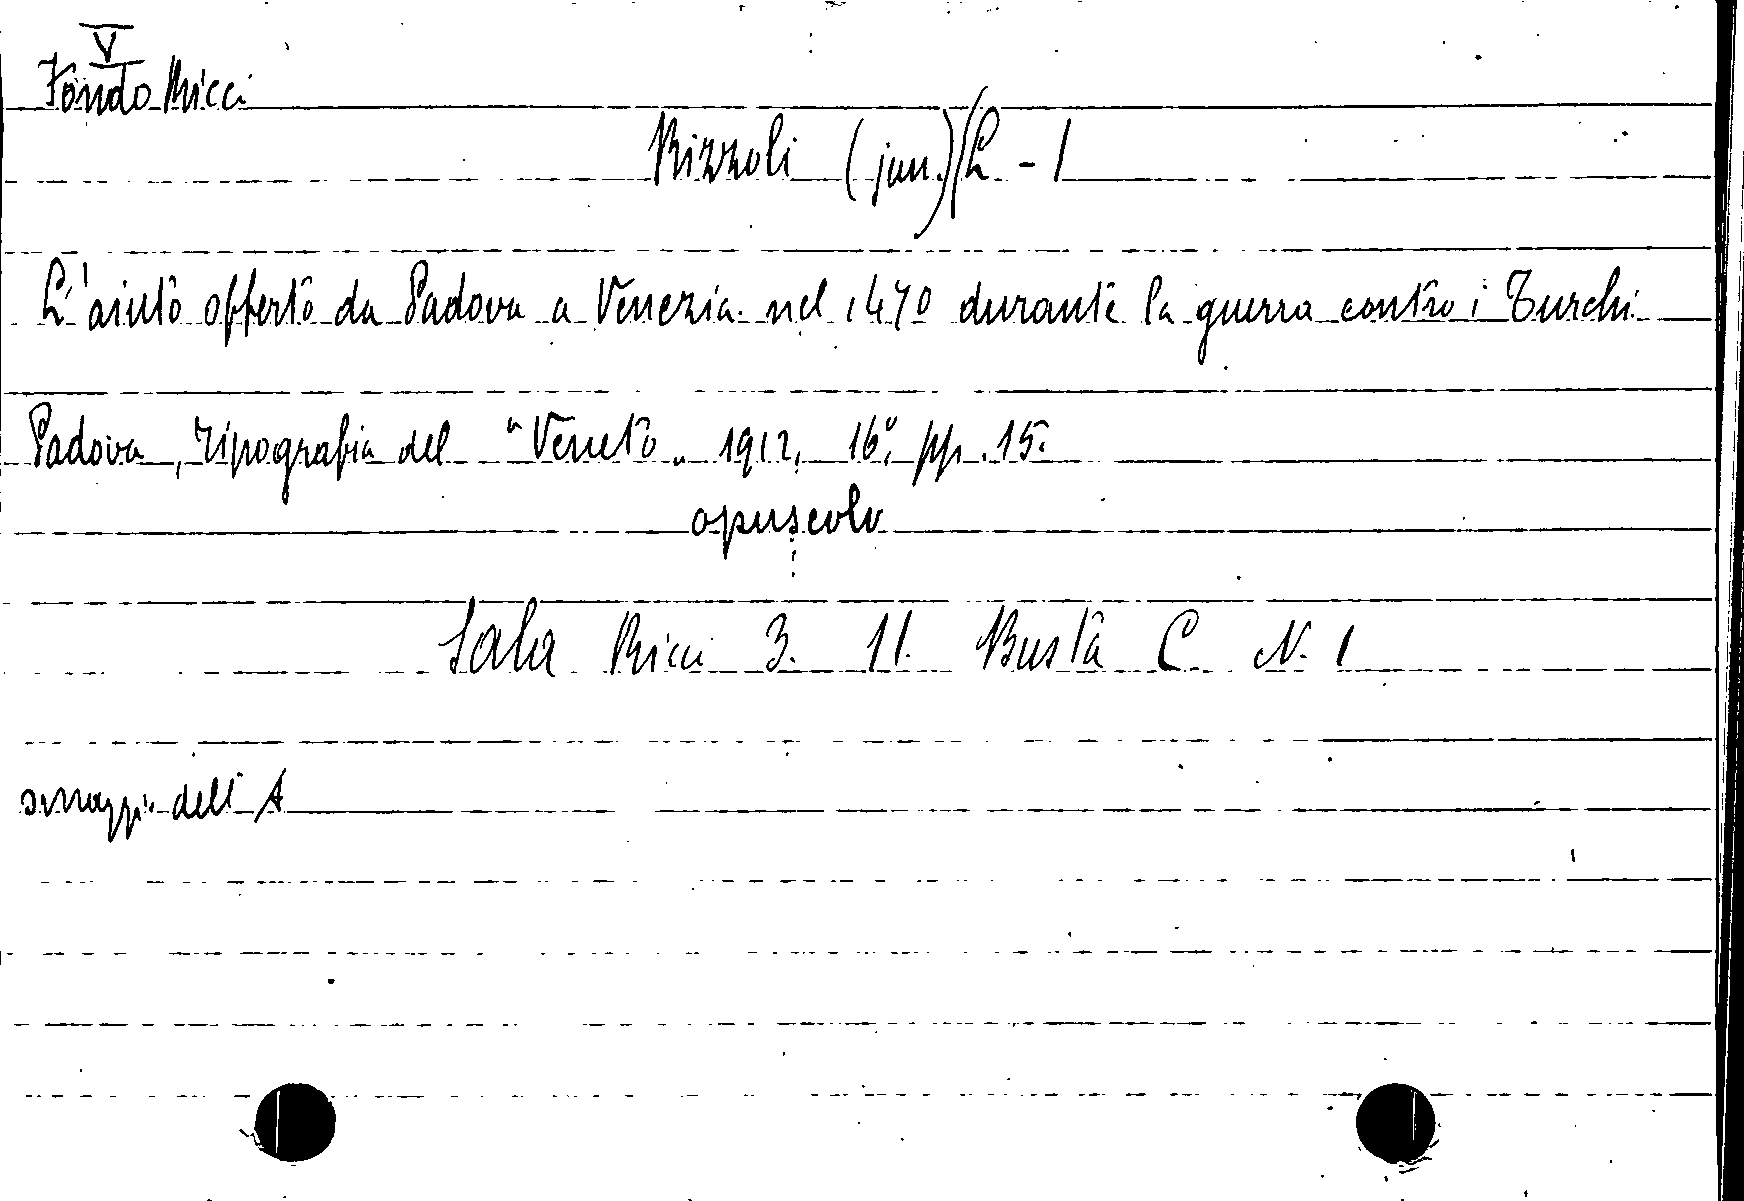 V
Fondo Ricci
Rizzoli (jun.) (L - 1
L'aiuto offerto da Padova a Venezia nel 1470 durante la guerra contro i Turchi
Padova, Tipografia del "Veneto" 1912, 16°, pp. 15.
opuscolo
Sala Ricci 3. 11. Busta C. N. 1
omaggio dell'A